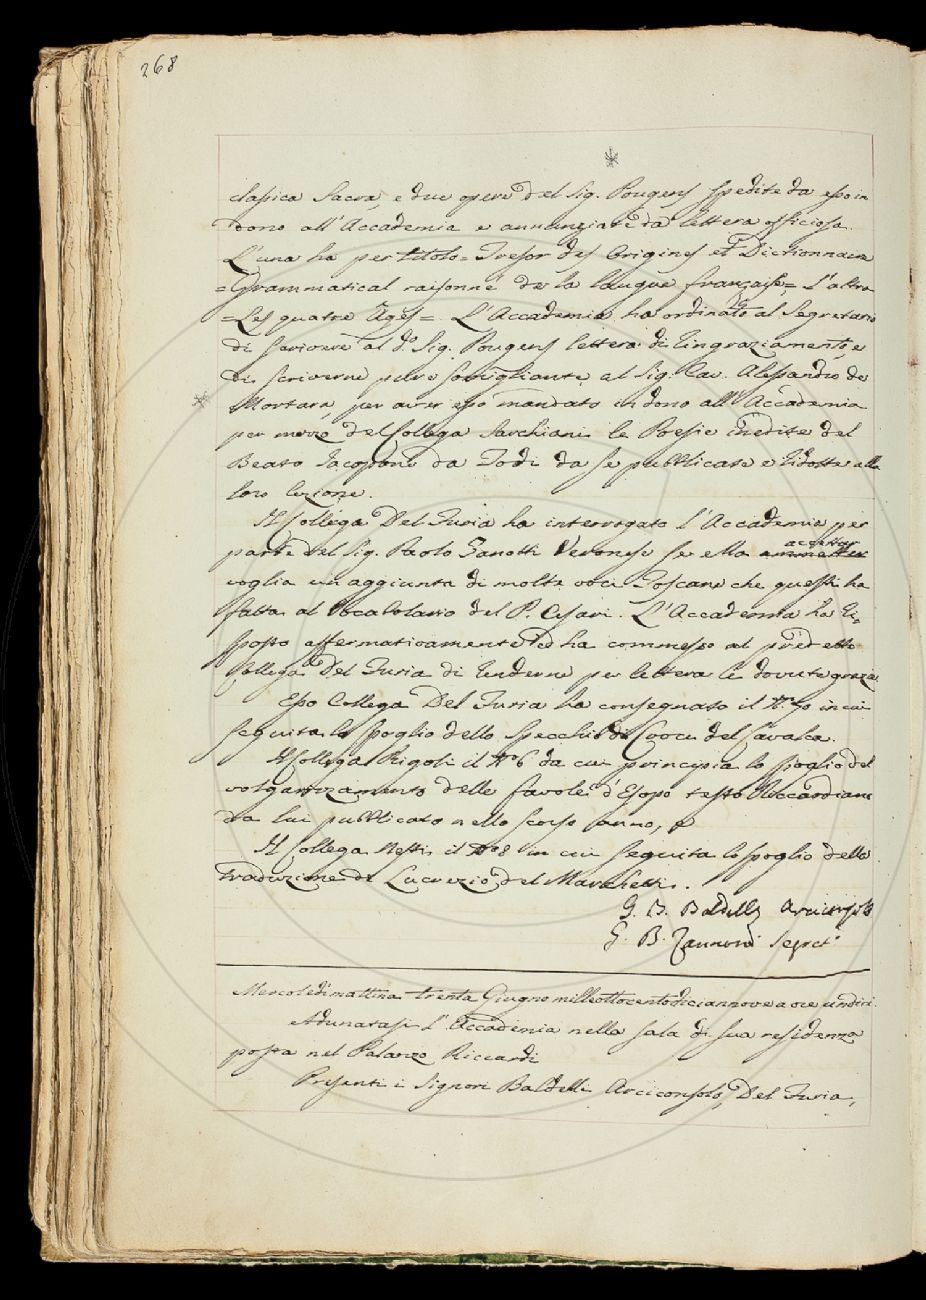 268
classica Sacra, e due opere del Sig. Pougens spedite da esso in
dono all'Accademia e annunziate da lettera officiosa.
L'una ha per titolo = Tresor des Origines et Dictionnaire
= Grammatical raisonné de la langue française = L'altra
= Les quatre Ages =. L'Accademia ha ordinato al Segretario
di scrivere al do. Sig. Pougens lettera di ringraziamento, e
di scriverne pure somigliante al Sig. Cav. Alessandro de
Mortara, per aver esso mandato in dono all'Accademia
per mezzo del Collega Sarchiani le Poesie inedite del
Beato Jacopone da Todi da se pubblicate e ridotte alla
loro lezione.
Il Collega Del Furia ha interrogato l'Accademia per
parte del Sig. Paolo Zanotti Veronese se ella accettar
voglia un aggiunta di molte voci Toscane che questi ha
fatta al Vocabolario del P. Cesari. L'Accademia ha ri=
sposto affermativamente ed ha commesso al predetto
Collega Del Furia di renderne per lettera le dovute grazie
Esso Collega Del Furia ha consegnato il No. 70 in cui
seguita lo spoglio dello Specchio di Croce del Cavalca.
Il Collega Rigoli il No. 6 da cui principia lo spoglio del
volgarizzamento delle favole d'Esopo testo Riccardiano
da lui pubblicato nello scorso anno,
Il Collega Nesti il No. 8 in cui seguita lo spoglio della
traduzione di Lucrezio del Marchetti.
G. B. Baldelli Arciconsolo
G. B. Zannoni Segret.o
Mercoledì mattina trenta Giugno milleottocentodiciannove a ore undici
Adunatasi l'Accademia nella sala di sua residenza
posta nel Palazzo Riccardi
Presenti i Signori Baldelli Arciconsolo, Del Furia,